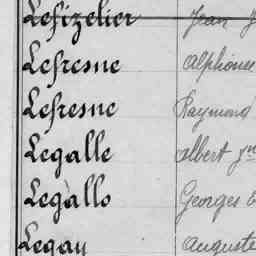 Lefizelier Jean
Lefresne Alphonse
Lefresne Raymond
Legalle albert
Legallo Georges
Legay Auguste